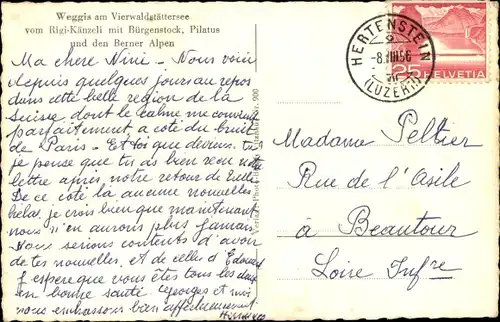 Weggis am Vierwaldstättersee
vom Rigi-Känzeli mit Bürgenstock, Pilatus
und den Berner Alpen
Ma chere Nini - Nous voici
depuis quelques jours au repos
dans cette belle region de la
Suisse dont le calme me convient
parfaitement a coté du bruit
de Paris - Et toi que deviens tu
je pense que tu as bien reçu notre
lettre après notre retour de
De ce côté là aucune nouvelles
helas, je crois bien que maintenant
nous n'en aurons plus jamais
Nous serions contents d'avoir
de tes nouvelles, et de celles d'Edouard
J'espere que vous êtes tous les deux
en bonne santé Georges et moi
nous embrassons bien affectueusement
HERTENSTEIN
-8.VIII.56
(LUZERN)
25 HELVETIA
Madame Peltier
Rue de l'Asile
à Beautour
Loire Infre